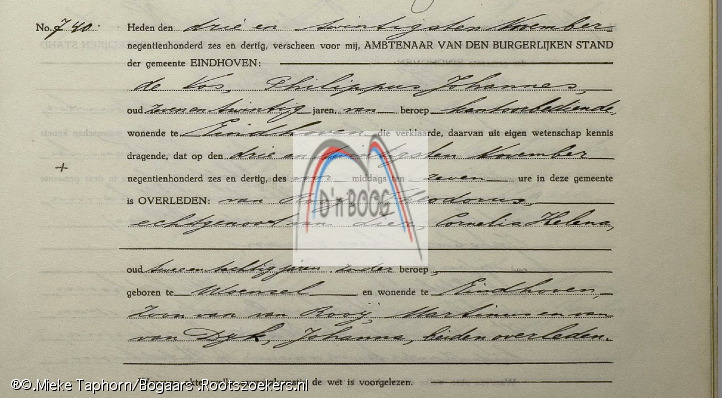 No. 740. Heden den drie en twintigsten November
negentienhonderd zes en dertig, verscheen voor mij, AMBTENAAR VAN DEN BURGERLIJKEN STAND
der gemeente EINDHOVEN:
de Vos, Philippus Johannes,
oud zeven en twintig jaren, van beroep kantoorbediende,
wonende te Eindhoven die verklaarde, daarvan uit eigen wetenschap kennis
dragende, dat op den drie en twintigsten November
negentienhonderd zes en dertig, des middags ten zeven ure in deze gemeente
is OVERLEDEN: van Theodorus,
echtgenoot van Cornelia Helena,
D'n BOOG
oud jaren, zonder beroep,
geboren te Woensel en wonende te Eindhoven,
zoon van van Rooij, Martinus en van
van Dijk, Johanna, beiden overleden.
de wet is voorgelezen.
®© Mieke Taphorn/Bogaars :Rootszoekers.nl